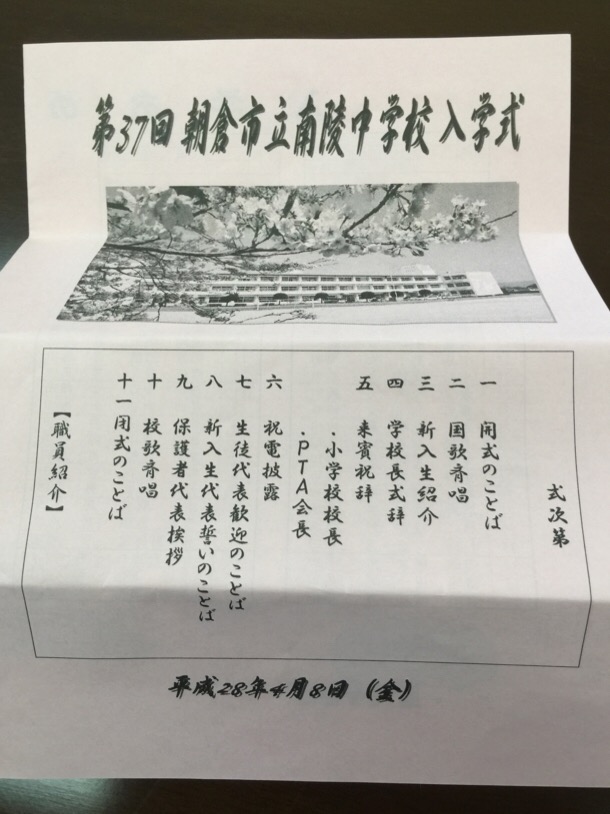 第37回 朝倉市立南陵中学校 入学式
式次第
一 開式のことば
二 国歌斉唱
三 新入生紹介
四 学校長式辞
五 来賓祝辞
・小学校校長
・PTA会長
六 祝電披露
七 生徒代表歓迎のことば
八 新入生代表誓いのことば
九 保護者代表挨拶
十 校歌斉唱
十一 閉式のことば
【職員紹介】
平成28年4月8日(金)